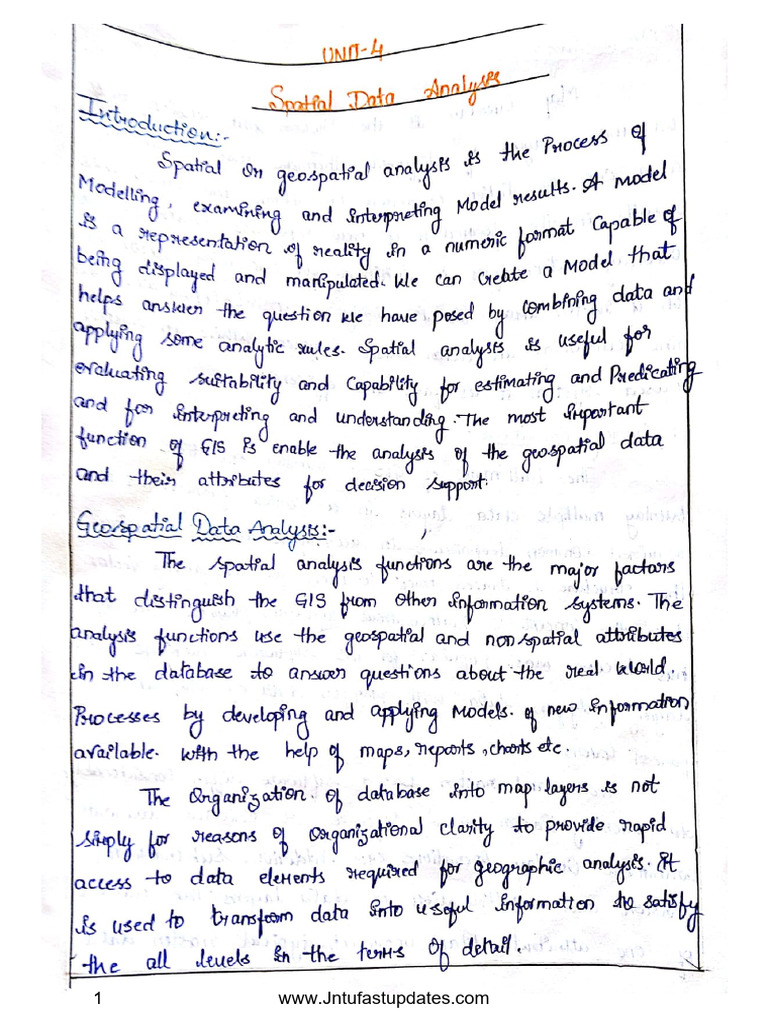 UNIT-4
Spatial Data Analysis
Introduction:-
Spatial or geospatial analysis is the Process of
Modelling, examining and interpreting Model results. A model
is a representation of reality in a numeric format Capable of
being displayed and manipulated. We can Create a Model that
helps answer the question we have posed by combining data and
applying some analytic rules. Spatial analysis is useful for
evaluating suitability and Capability for estimating and Predicating
and for interpreting and understanding. The most important
function of GIS is enable the analysis of the geospatial data
and their attributes for decision support.
Geospatial Data Analysis:-
The spatial analysis functions are the major factors
that distinguish the GIS from other information systems. The
analysis functions use the geospatial and non spatial attributes
in the database to answer questions about the real world.
Processes by developing and applying Models. of new information
available. with the help of maps, reports, charts etc.
The Organization of database into map layers is not
simply for reasons of organizational clarity to provide rapid
access to data elements required for geographic analysis. It
is used to transform data into useful information to satisfy
the all levels in the terms of detail.
1 www.Jntufastupdates.com